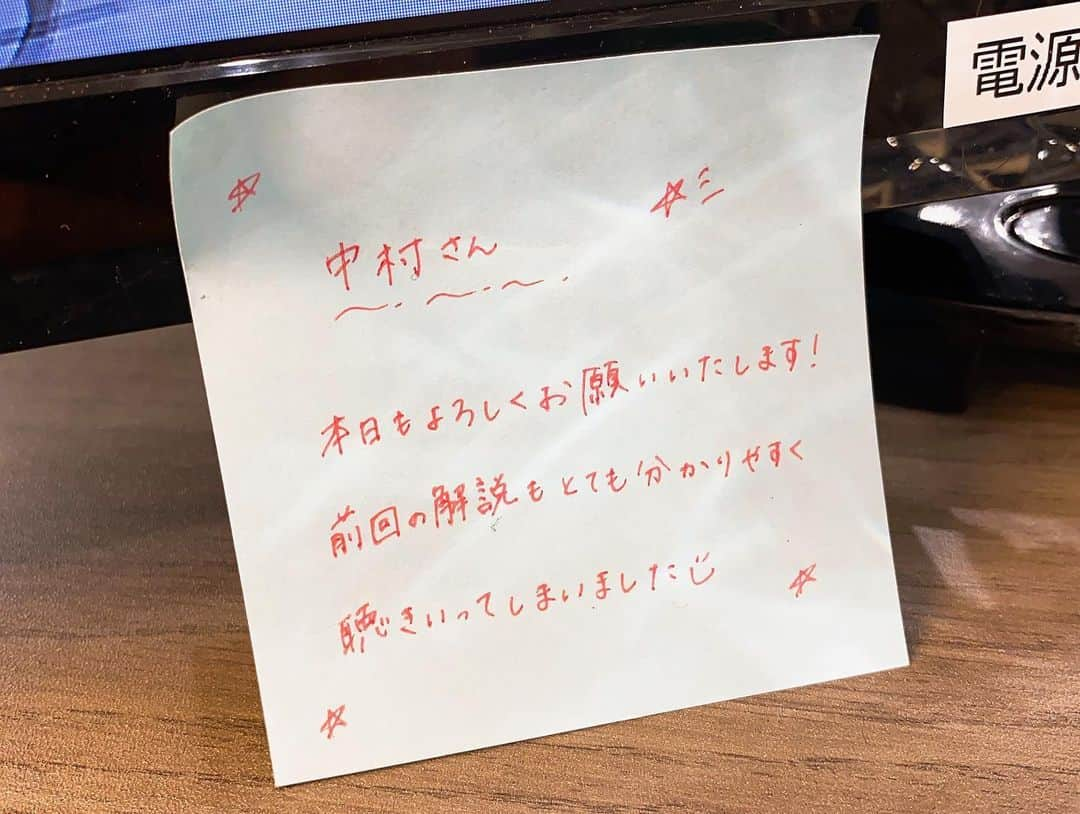 電源
中村さん
本日もよろしくお願いいたします!
前回の解説もとても分かりやすく
聴きいってしまいました